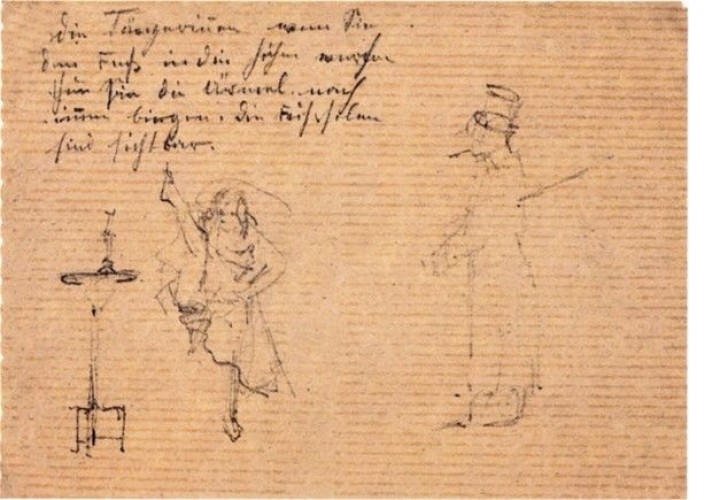 die Tänzerinen wenn Sie
den Fuß in die Höhe werfen
für Sie die Ärmel nach
innen biegen: die Fußsohlen
sind sichtbar.